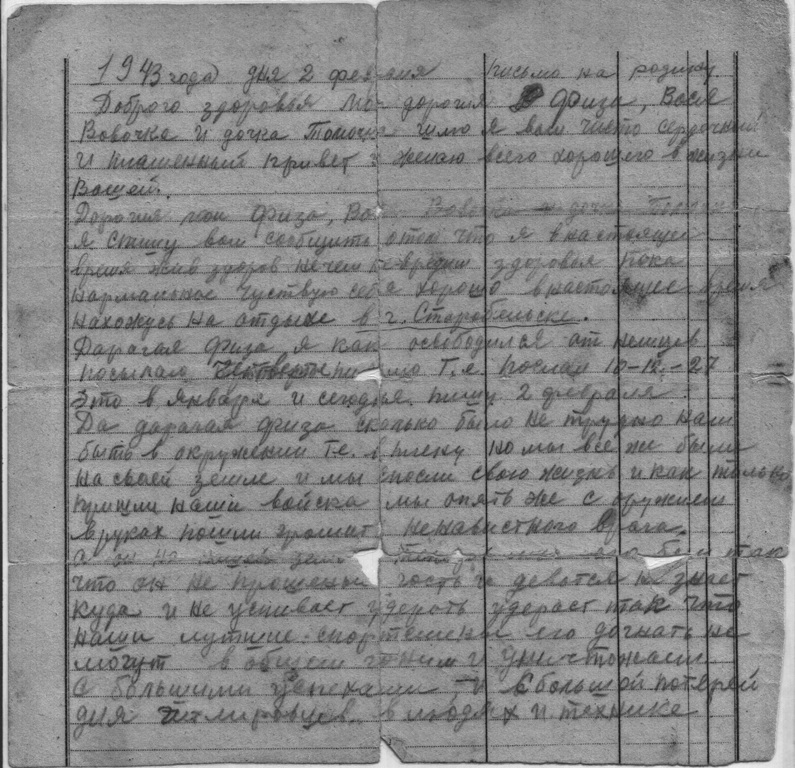 1943 года дня 2 февраля письмо на родину.
Доброго здоровья мои дорогия Физа, Вася
Вовочка и дочка Томочка шлю я вам чисто сердечный
и пламенный привет и желаю всего хорошего в жизни
Вашей.
Дорогия мои Физа, Вася Вовочка и дочка Томочка
я спишу вам сообщить отом что я внастоящее
время жив здоров нечем не вредим здоровья пока
нармальное чуствую себя хорошо внастоящее время
нахожусь на отдыхе в г. Старобельске.
Дарагая Физа я как освободился от немцев
посылаю четвертое письмо т.е. послал 10-12-27
это в января и сегодня пишу 2 февраля.
Да дарагая Физа сколько было не трудно нам
быть в окружении т.е. в плену но мы все же были
на своей земле и мы спосли свою жизнь и как только
пришли наши войска мы опять же с оружием
вруках пошли громит ненавистного врага
а он на нашей земле
что он не прошеный гость и деватся не знает
куда и не успивает удерать удерает так что
наши лутшие спортсмены его догнать не
могут в общем гоним и
с большими успехами и с большой потерей
для гитлеровцев в людях и технике